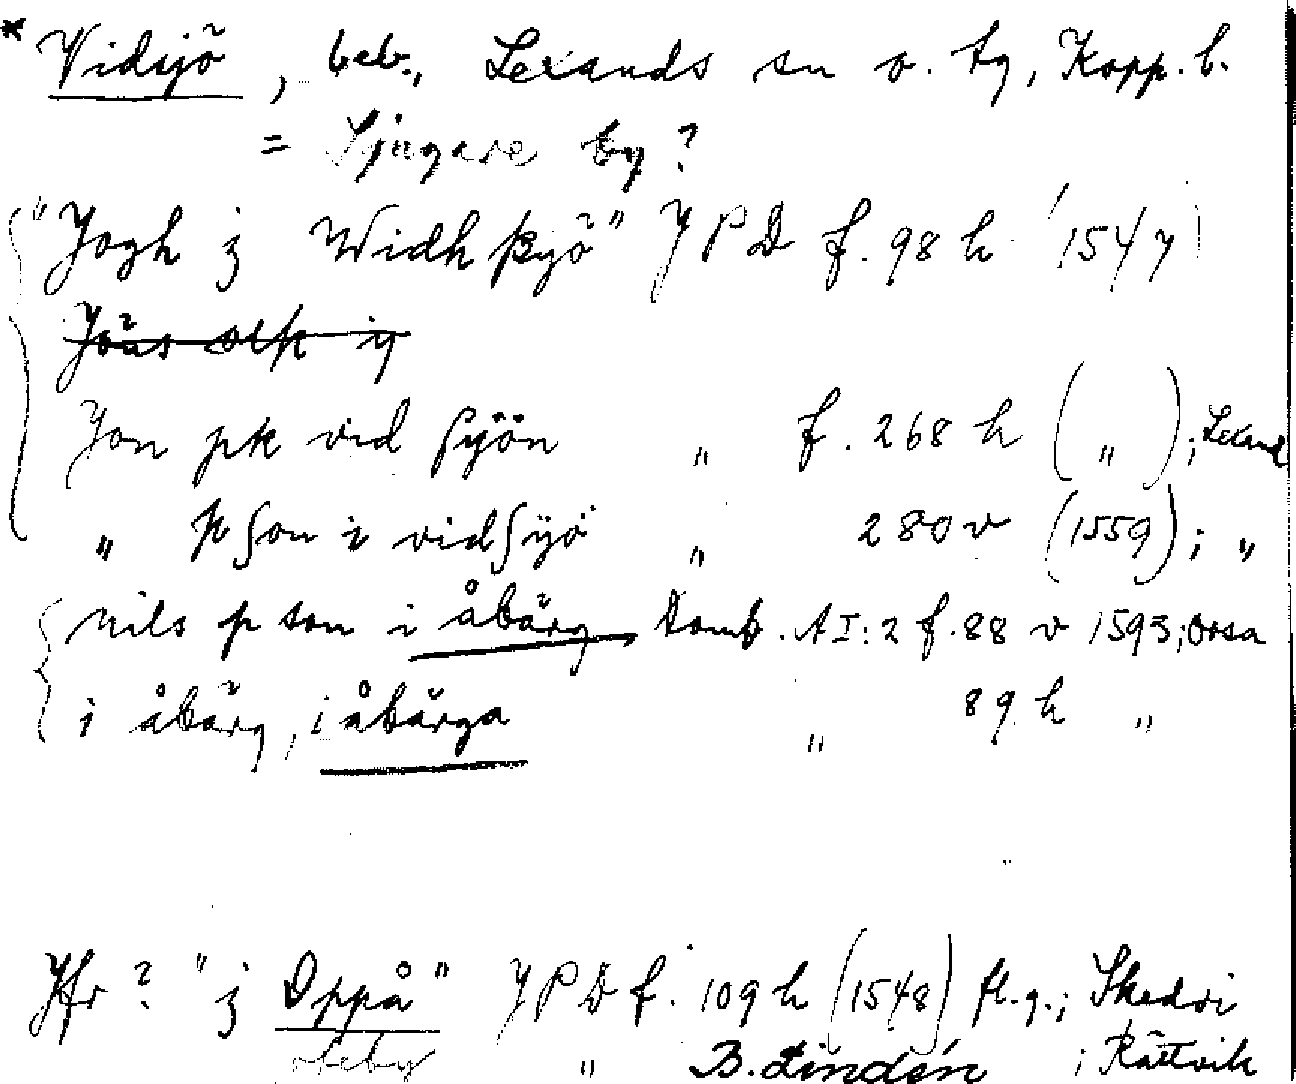 * Vidsjö, beb., Lexands sn o. tg, Kopp. l.
= Sjugare by?
"Jogh j Widh ßyö" JPD f. 98 h (1547)
Jöns olß ij
Jon pk vid ſyön " f. 268 h ( " ); Lexand
" p ſon i vidſyö " 280 v (1559); "
nils p son i åbärg Domb. AI:2 f. 88 v 1593; Orsa
i åbärg, i åbärga " 89 h "
Jfr? "j Oppå" JPD f. 109 h (1548) fl. g.; Skedvi
" B. Lindén ; Rättvik